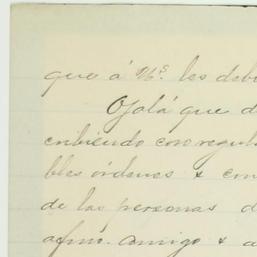 que á Vs. les deb
Ojalá que d
cribiendo con regul
bles órdenes & con
de las personas d
afmo. amigo & a